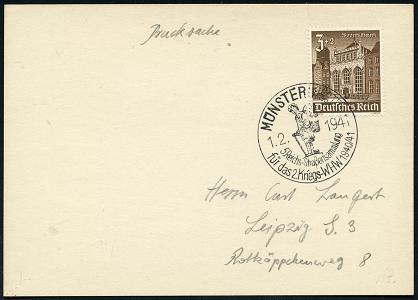 Drucksache
3+2
Deutsches Reich
MÜNSTER
1.2. 1941
5. Reichs-Straßensammlung
für das 2. Kriegs-WHW 1940/41
Herrn Curt Langert
Leipzig S. 3
Rotkäppchenweg 8